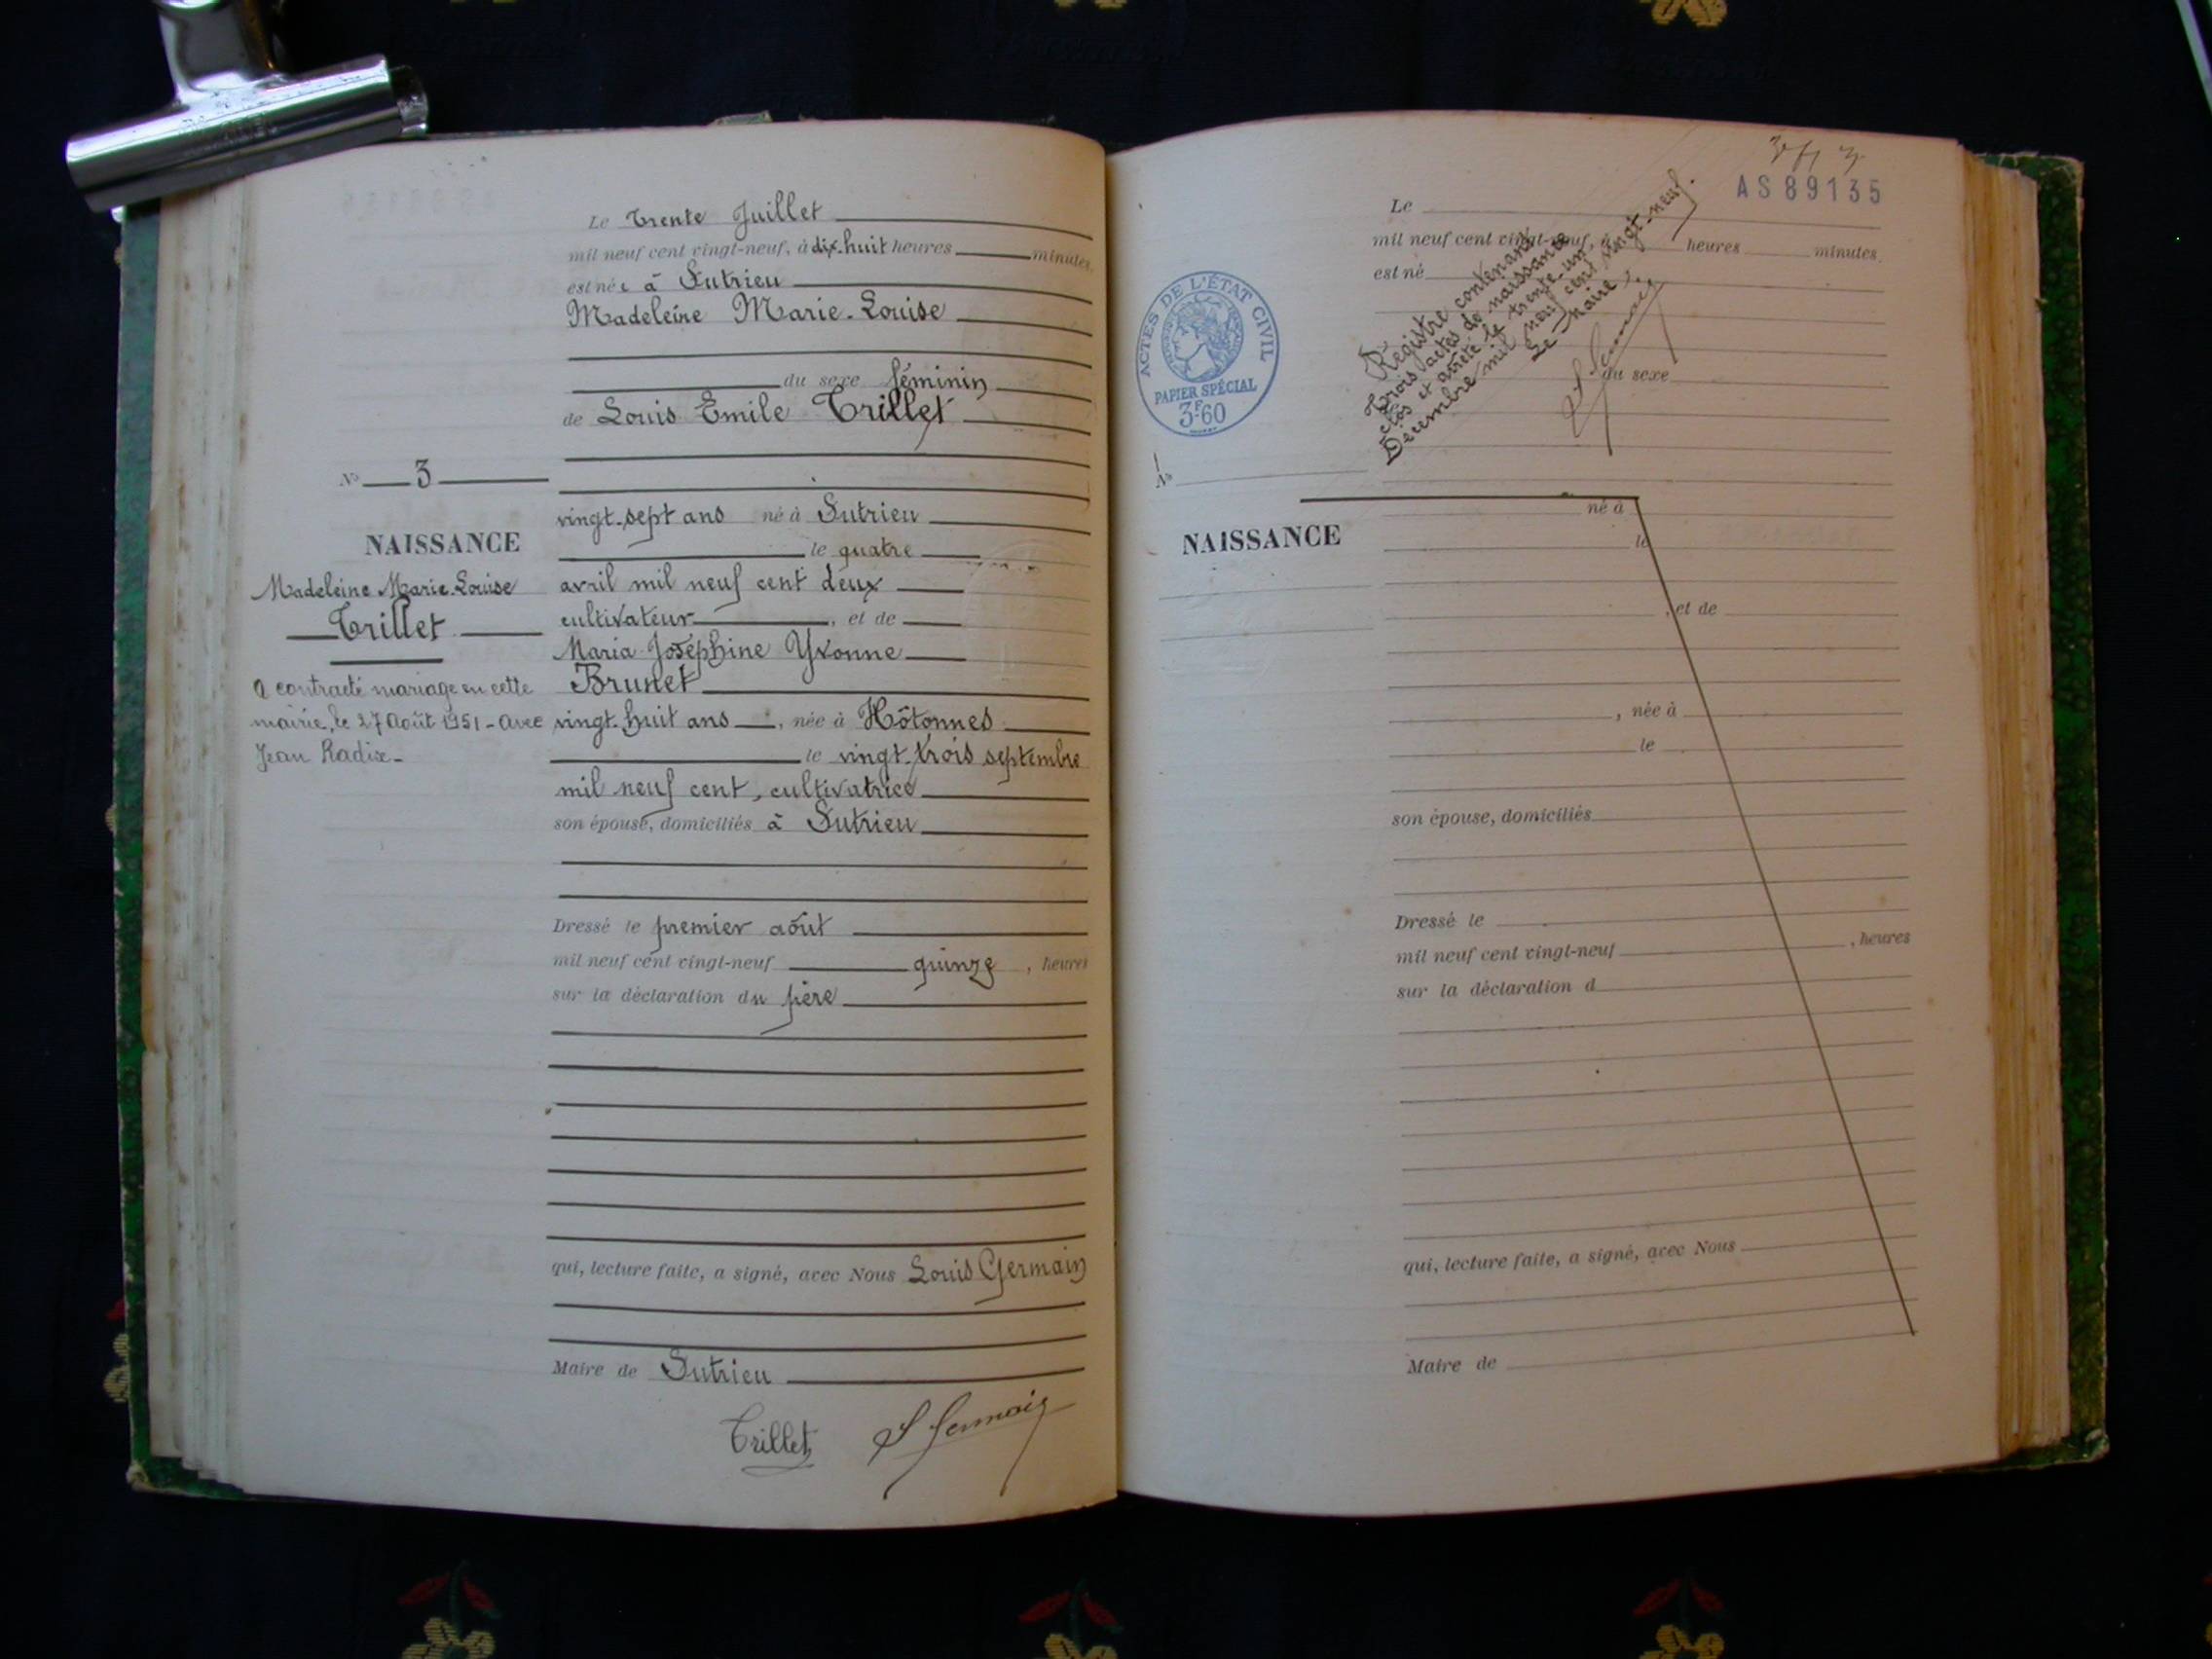 Le Trente Juillet
mil neuf cent vingt-neuf, à dix-huit heures minutes
est née à Sutrieu
Madeleine Marie-Louise
du sexe féminin
de Louis Emile Trillet
vingt-sept ans né à Sutrieu
le quatre
avril mil neuf cent deux
cultivateur, et de
Maria Joséphine Yvonne
Brunet
vingt-huit ans, née à Hôtonnes
le vingt-trois septembre
mil neuf cent, cultivatrice
son épouse, domiciliés à Sutrieu
Dressé le premier août
mil neuf cent vingt-neuf quinze, heures
sur la déclaration du père
qui, lecture faite, a signé, avec Nous Louis Germain
Maire de Sutrieu
Trillet L Germain
No 3
NAISSANCE
Madeleine Marie-Louise
Trillet
a contracté mariage en cette
mairie, le 27 Août 1951 - avec
Jean Radix-
AS 89135
ACTES DE L'ÉTAT CIVIL
PAPIER SPÉCIAL
3F60
Registre contenant
trois actes de naissance
clos et arrêté le trente-un
Décembre mil neuf cent vingt-neuf.
Le Maire,
L Germain
Le
mil neuf cent vingt-neuf, à heures minutes
est né
du sexe
No
NAISSANCE
né à
le
, et de
, née à
le
son épouse, domiciliés
Dressé le
mil neuf cent vingt-neuf , heures
sur la déclaration d
qui, lecture faite, a signé, avec Nous
Maire de